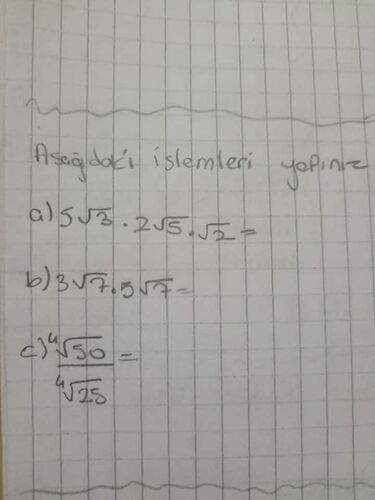 Aşağdaki işlemleri yapınız
a) 5√3 . 2√5 . √2 =
b) 3√7 . 5√7 =
c) ⁴√50 / ⁴√25 =